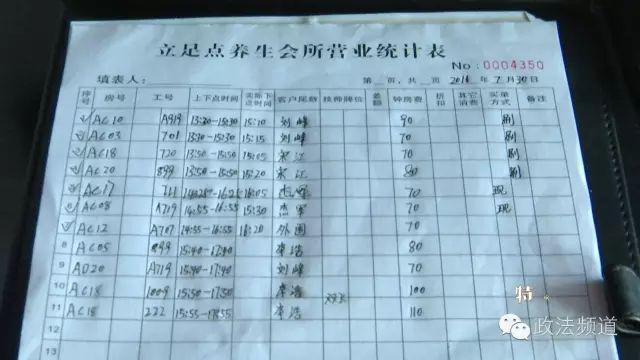 立足点养生会所营业统计表
No: 0004350
填表人: 第 页,共 页 2016 年 7 月 30 日
序号 房号 工号 上下点时间 实际下点时间 客户尾数 技师牌价 差额 钟房费 折扣 其它消费 买单方式 备注
AC10 A919 13:20-15:30 15:10 刘峰 90 刷
AC03 701 15:15 刘峰 70 刷
AC18 720 13:50-15:50 15:05 宋江 70 刷
AC20 899 13:50-15:50 15:20 宋江 80 刷
AC17 16:05 70 现
AC08 A719 14:55-16:55 15:30 70 现
AC12 A707 14:55-16:55 16:20 外围 70
8 AC05 899 15:40-17:40 李浩 80
9 AD20 A719 15:40-17:40 刘峰 70
10 AC18 1009 15:50-17:50 李浩 100
11 AC18 222 15:55-17:55 李浩 110
12
13
特
政法频道